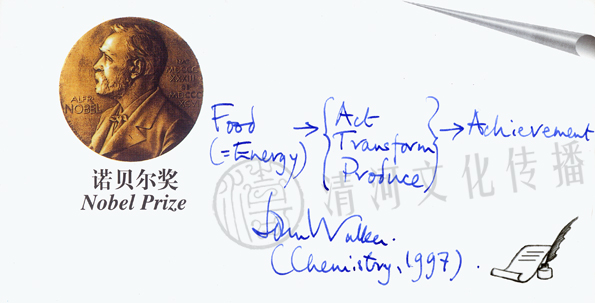 ALFR.
NOBEL
诺贝尔奖
Nobel Prize
Food (=Energy) → { Act Transform Produce } → Achievement
John Walker.
(Chemistry, 1997).
清河文化传播